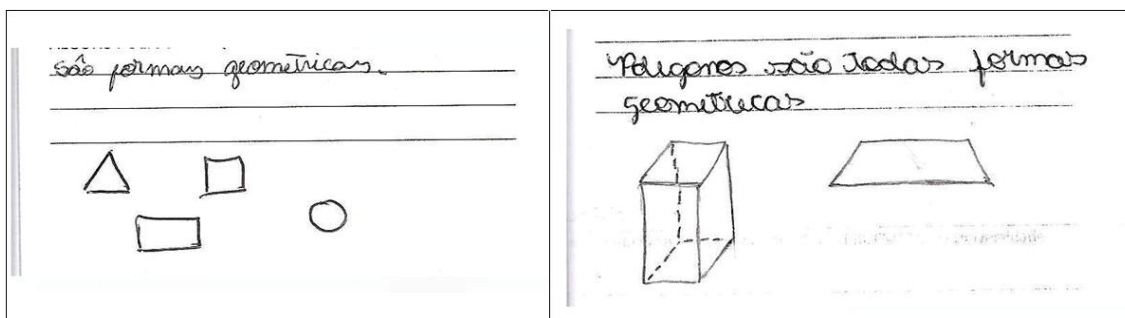 são formas geometricas.
Poligonos são todas formas
geometricas